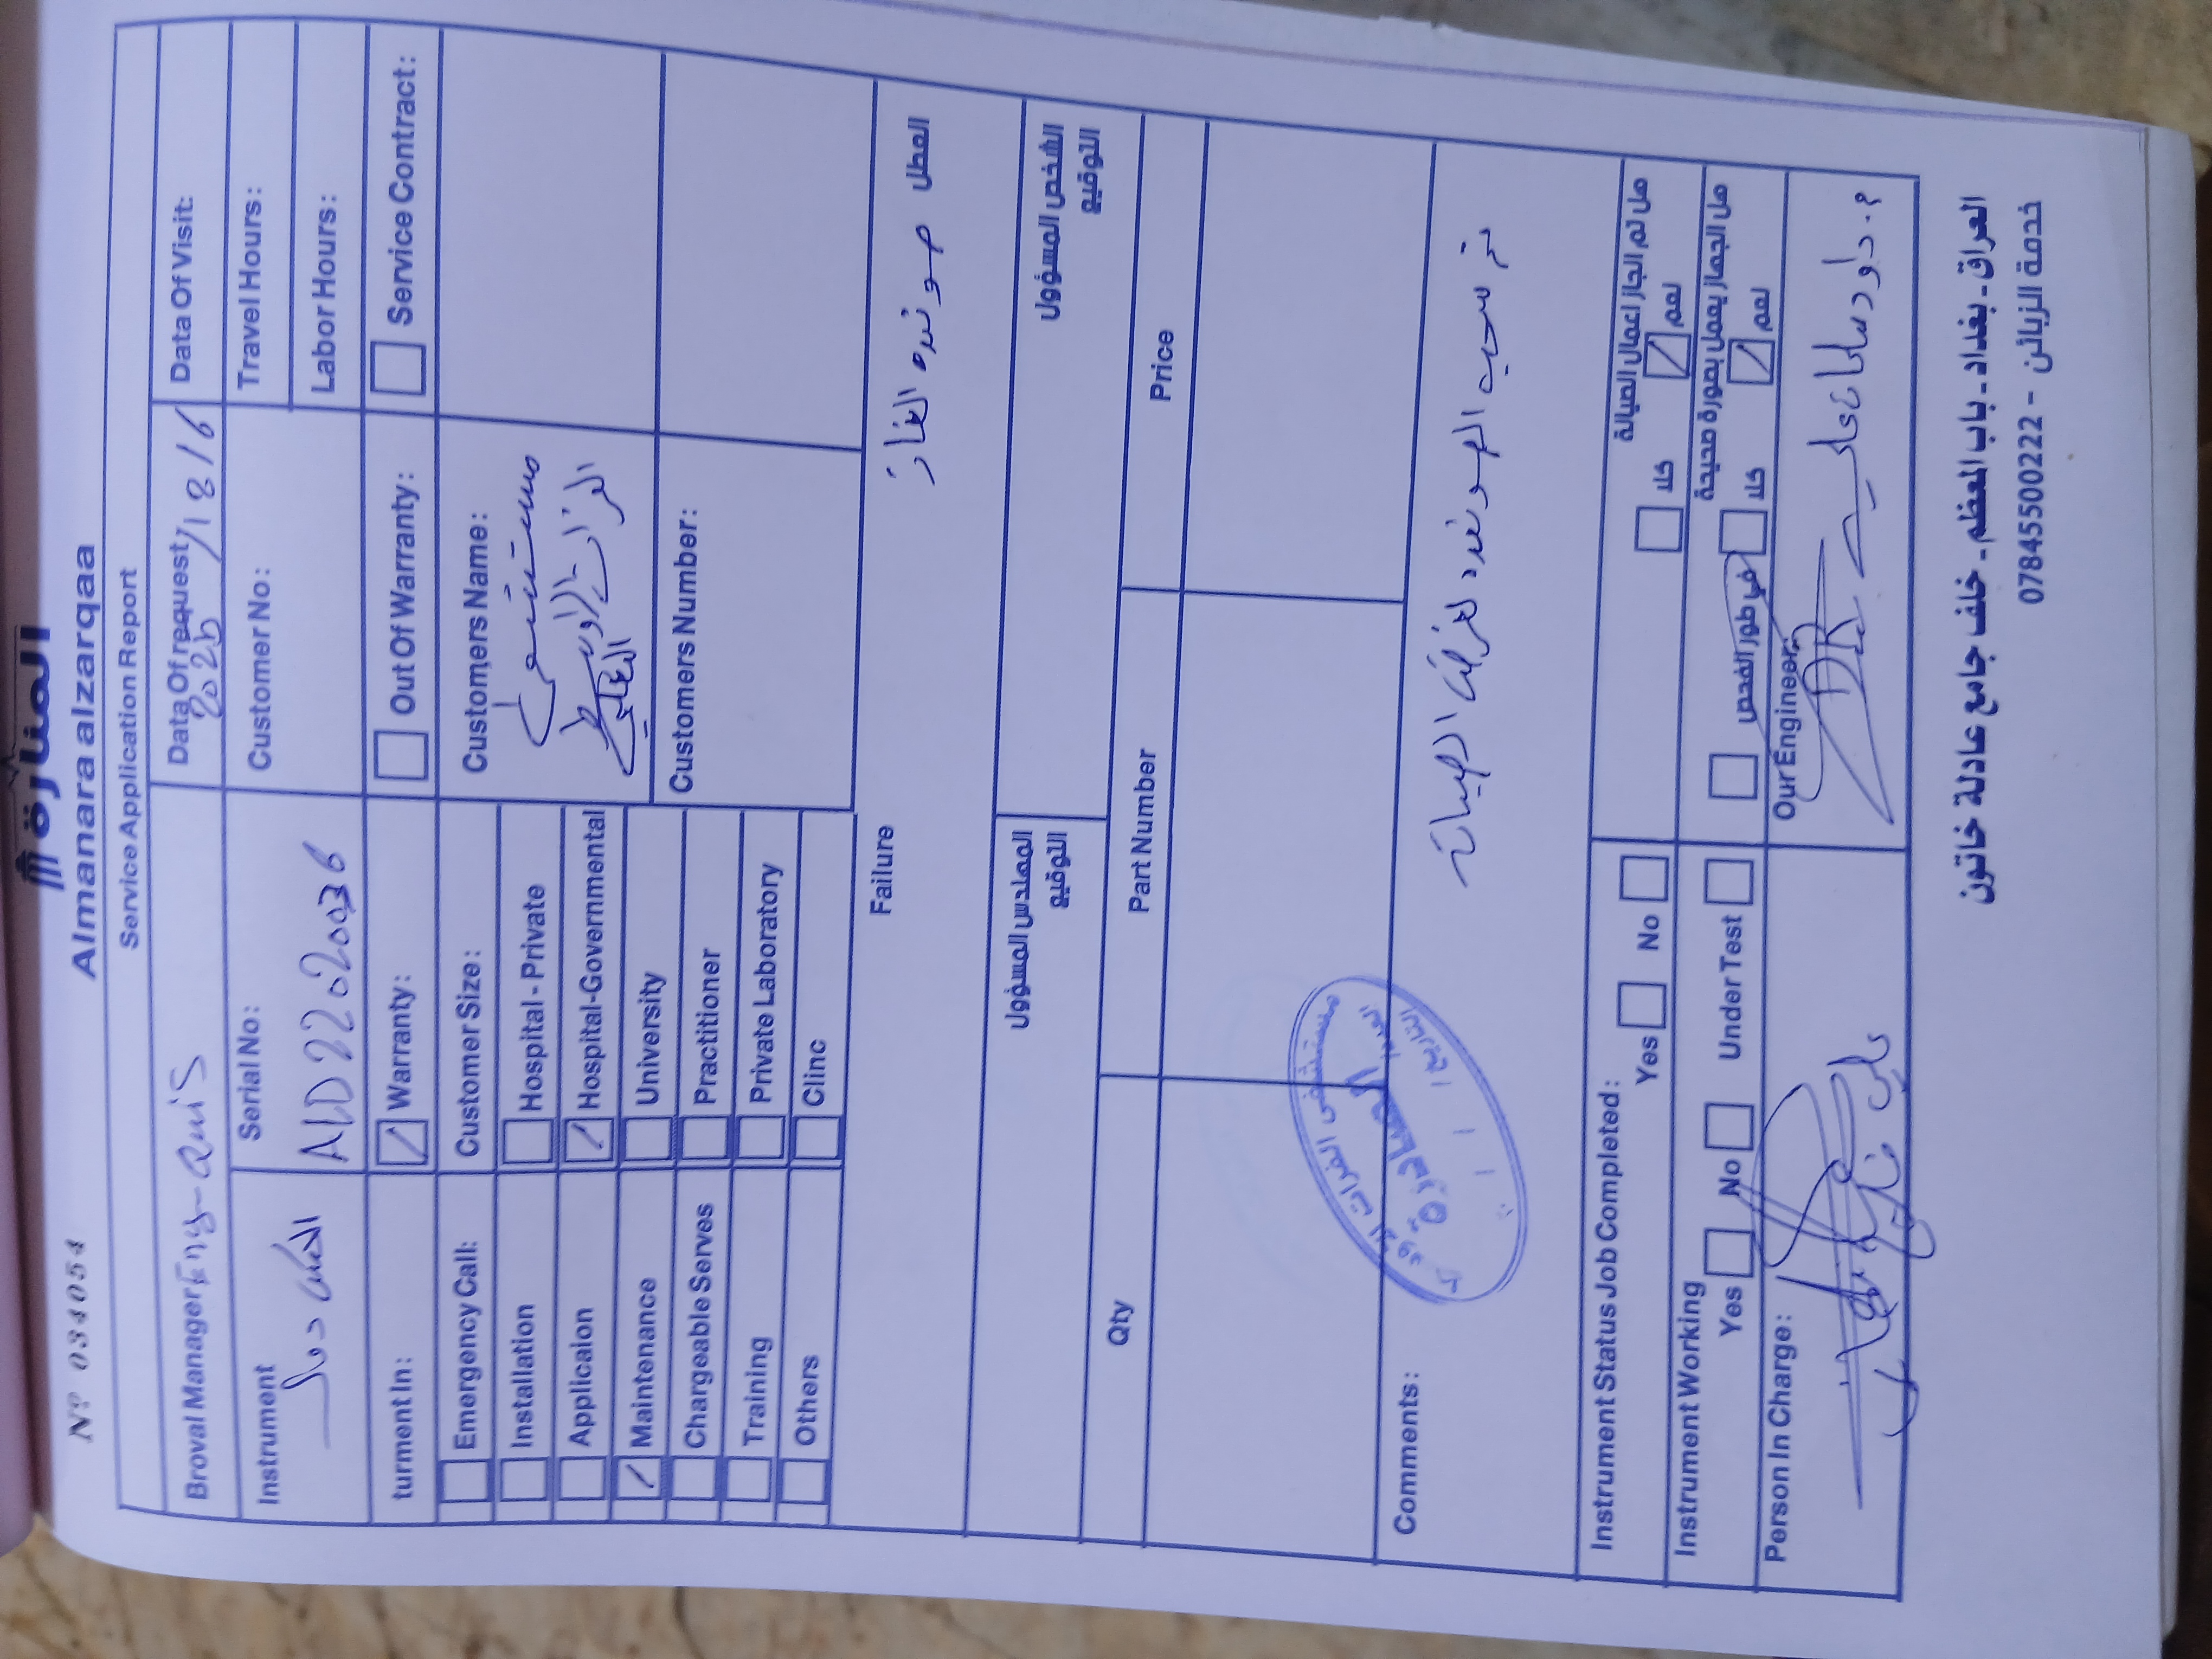 المنارة
Almanara alzarqaa
Nº 034054
Service Application Report
Broval Manager Eng-Qais
Data Of request / 18 / 6
2025
Data Of Visit:
Instrument
Serial No:
Customer No:
Travel Hours:
AUD22020036
Labor Hours:
turment In:
Warranty:
Out Of Warranty:
Service Contract:
Emergency Call:
Customer Size:
Customers Name:
مستشفى
Installation
Hospital - Private
الفرات الاوسط
Applicaion
Hospital-Governmental
التعليمي
Maintenance
University
Customers Number:
Chargeable Serves
Practitioner
Training
Private Laboratory
Others
Clinc
Failure
العطل
صونده الغاز
المهندس المسؤول
التوقيع
الشخص المسؤول
التوقيع
Qty
Part Number
Price
Comments:
تم سحب الصونده لغرض الصيانة
مستشفى الفرات
Instrument Status Job Completed:
هل تم انجاز اعمال الصيانة
Yes
No
كلا
نعم
Instrument Working
هل الجهاز يعمل بصورة صحيحة
Yes
No
Under Test
في طور الفحص
كلا
نعم
Person In Charge:
Our Engineer:
العراق - بغداد - باب المعظم - خلف جامع عادلة خاتون
خدمة الزبائن - 07845500222